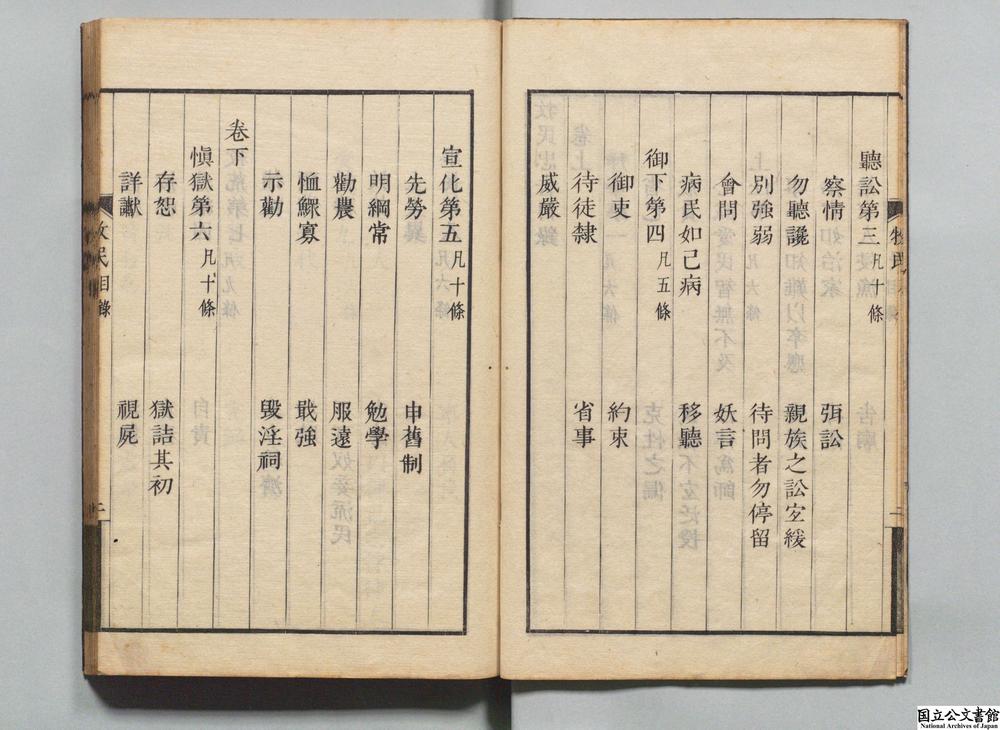 聽訟第三凡十條
察情 弭訟
勿聽讒 親族之訟宜緩
別強弱 待問者勿停留
會問 妖言
病民如己病 移聽
御下第四凡五條
御吏 約束
待徒隸 省事
威嚴
宣化第五凡十條
先勞 申舊制
明綱常 勉學
勸農 服遠
恤鰥寡 戢強
示勸 毀淫祠
卷下
愼獄第六凡十條
存恕 獄詰其初
詳讞 視屍
牧民目錄
二
国立公文書館
National Archives of Japan